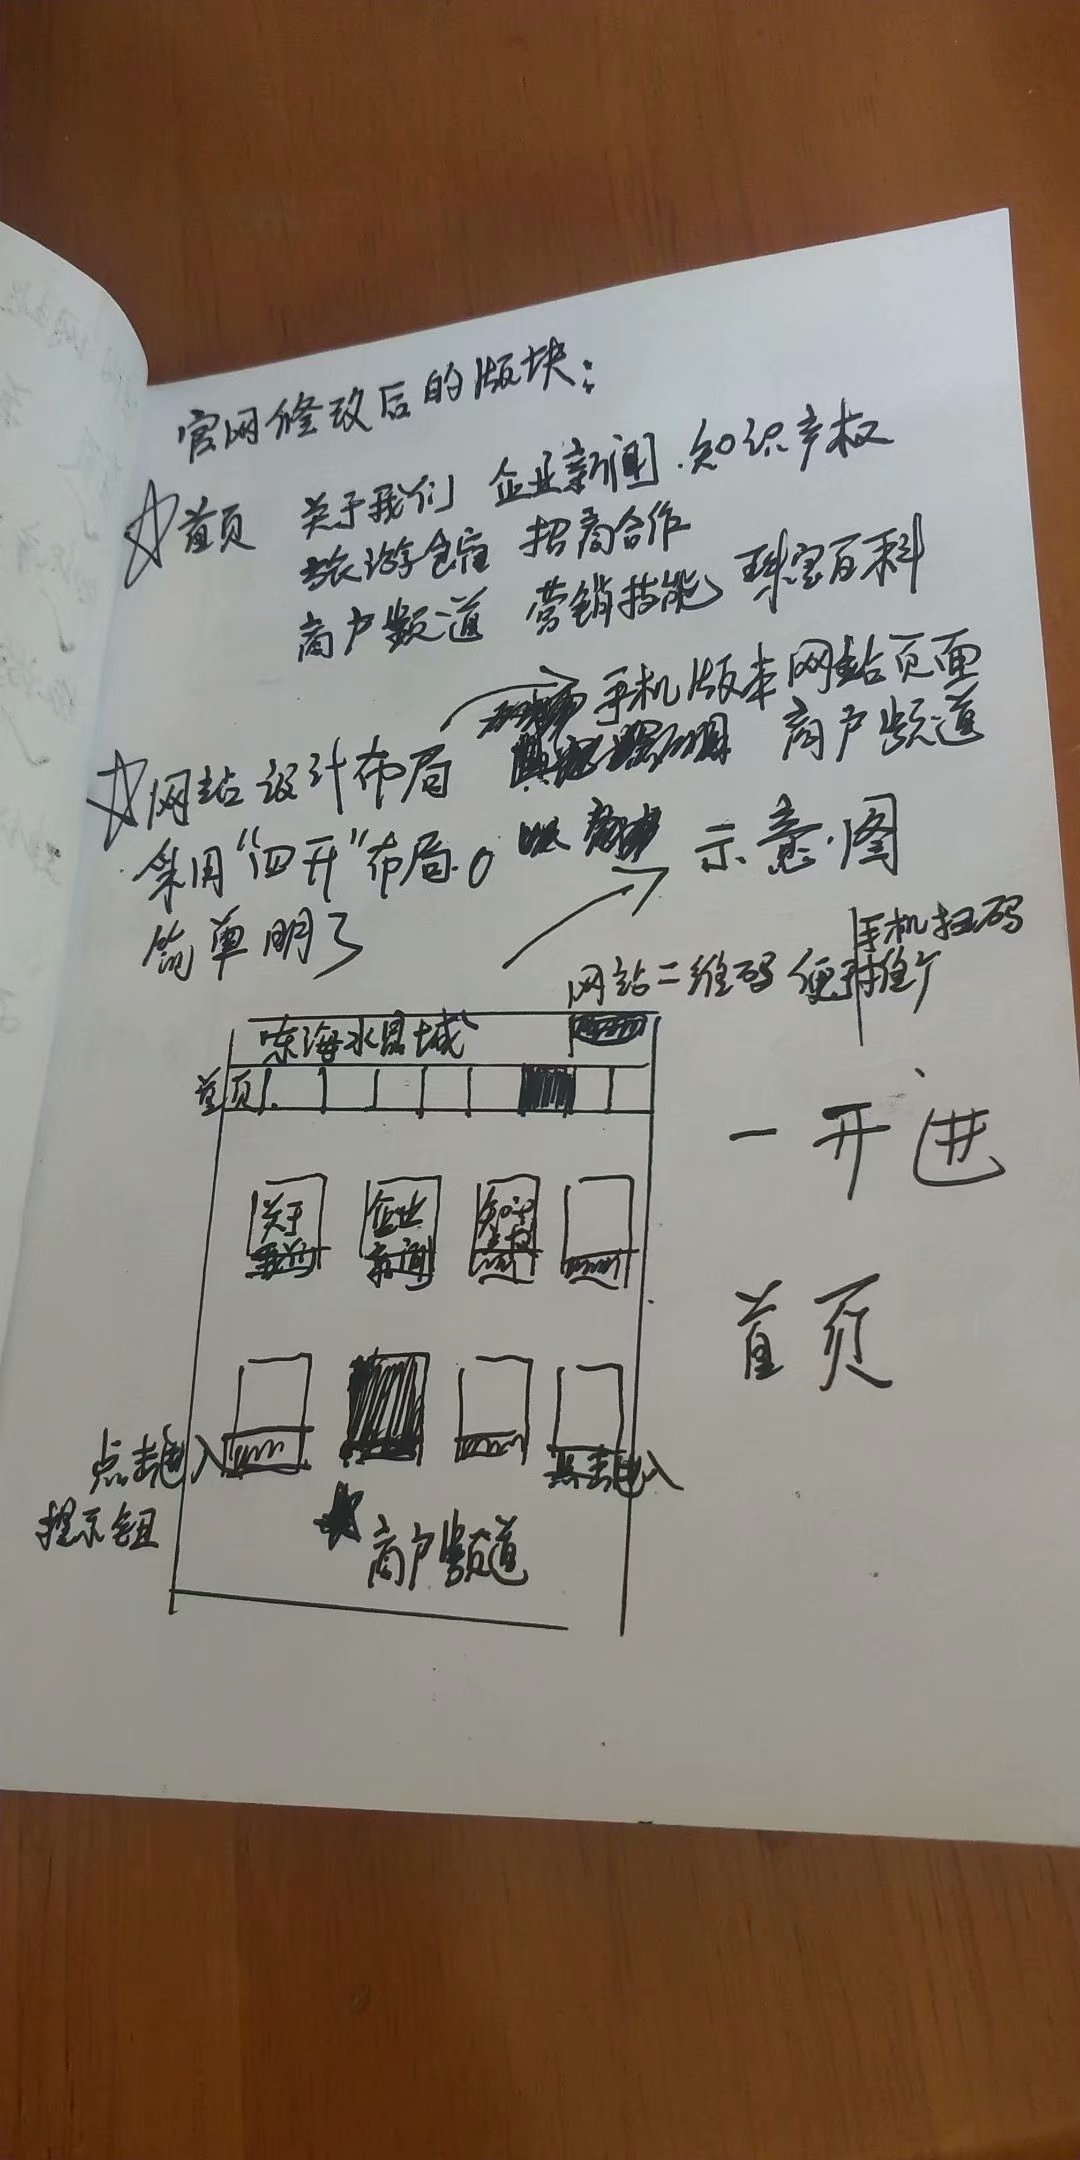 官网修改后的版块：
首页 关于我们 企业新闻 . 知识产权
旅游食宿 招商合作
商户频道 营销技能 珠宝百科
手机版本网站页面
网站设计布局 商户频道
采用“四开”布局。 示意图
简单明了
手机扫码
网站二维码 便于推广
东海水晶城
首页
一开进
首页
关于我们 企业新闻 知识产权
点击进入 点击进入
提示钮
商户频道